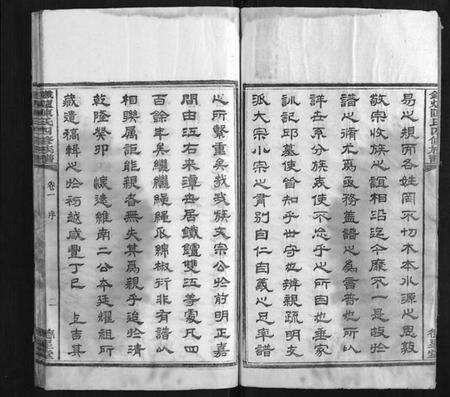 易之規而各姓罔不切本本水源之思敦
敬宗收族之誼相沿迄今靡不一是故於
譜之脩尤為亟務蓋譜之為言普也所以
詳在系分族表使不忘乎之所由也垂家
訓記邱墓使皆知乎世守也辨親疏明支
派大宗小宗之貫別自仁自義之足寧譜
之所繫重矣哉我族文宗公於前明正嘉
間由江右來潭母居鐵鑪雙江等處凡四
百餘年矣繼繼繩繩瓜綿椒衍非有譜以
相聯屬詎能親者無失其為親乎迨於清
乾隆癸卯 淑遠維南二公本廷耀祖所
歲遺稿輯之於祠越咸豐丁巳 上吉其
卷一 序
二